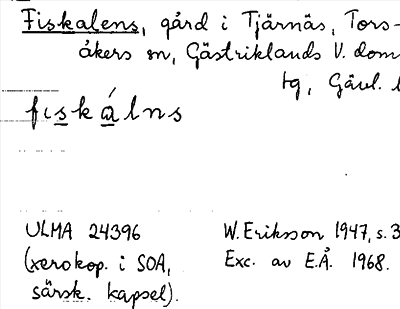 Fiskalens, gård i Tjärnäs, Tors-
åkers sn, Gästriklands V. dom
tg, Gävl. l
fıskálns
ULMA 24396
(xerokop. i SOA,
särsk. kapsel).
W. Eriksson 1947, s. 3
Exc. av E.Å. 1968.